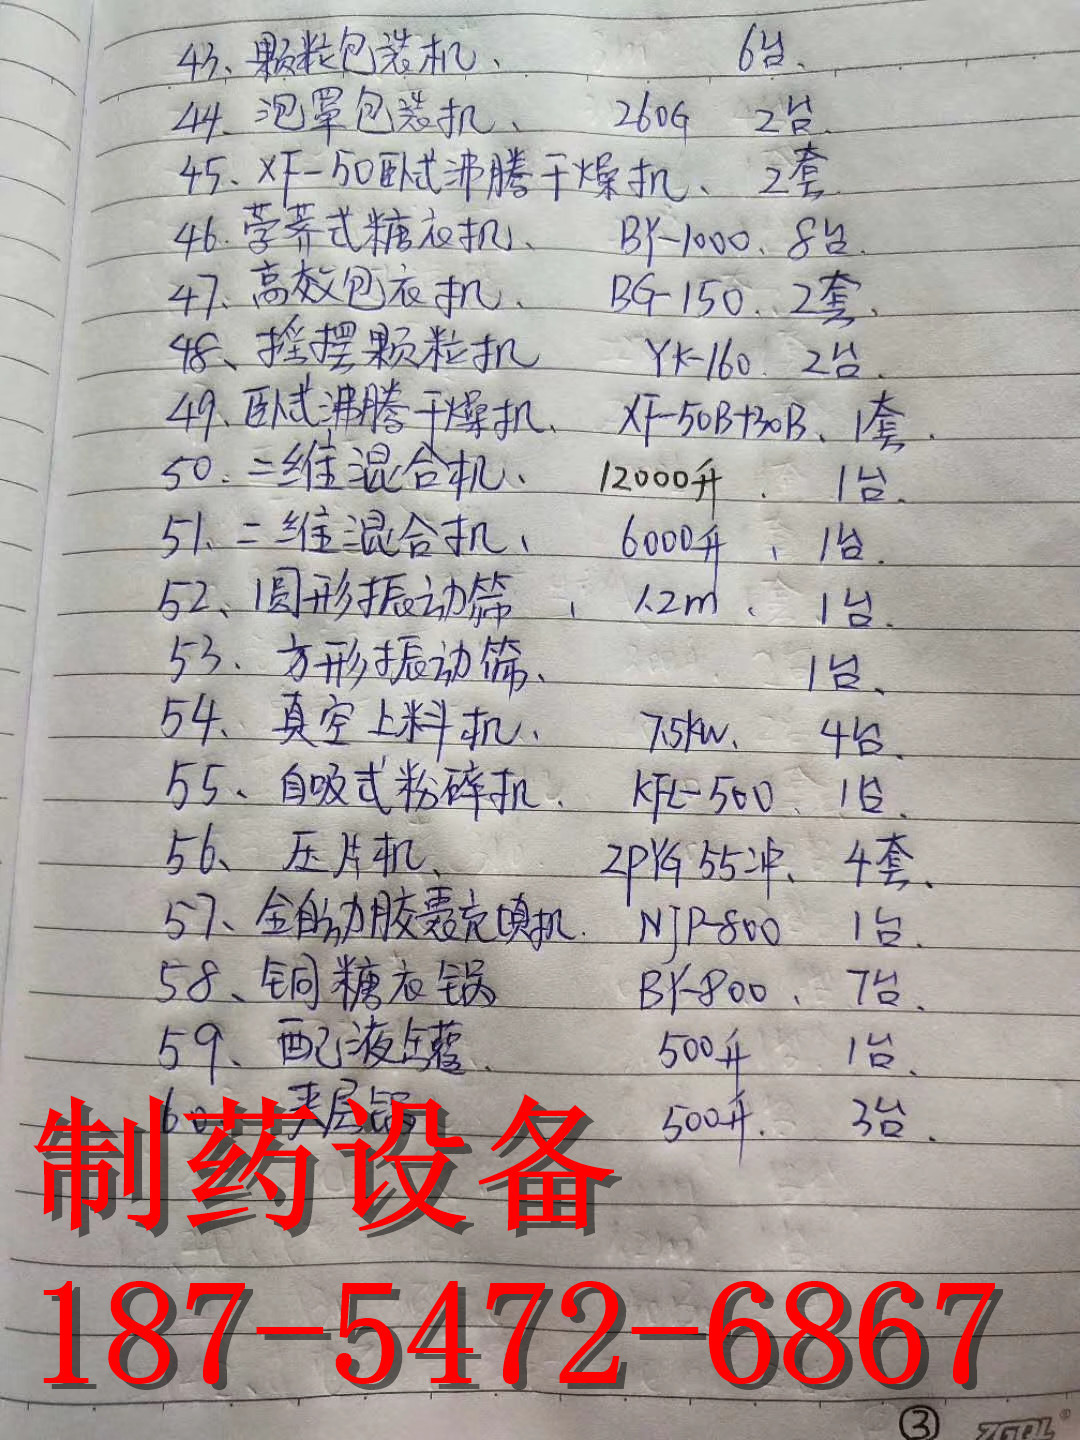 43、颗粒包装机、 6台、
44、泡罩包装机、 260G 2台.
45、XF-50卧式沸腾干燥机、 2套
46.荸荠式糖衣机、 BY-1000、8台.
47、高效包衣机、 BG-150、2套.
48、摇摆颗粒机 YK-160. 2台.
49、卧式沸腾干燥机、 XF-50B+30B、1套.
50.二维混合机、 12000升、 1台.
51、二维混合机、 6000升、 1台.
52、圆形振动筛、 1.2m、 1台.
53、方形振动筛、 1台、
54、真空上料机、 7.5kw、 4台.
55、自吸式粉碎机. KFL-500、 1台.
56、压片机、 ZPYG 55冲、 4套、
57、全自动胶囊充填机. NJP-800 1台.
58、铜糖衣锅 BY-800、 7台.
59、配液罐. 500升 1台.
60、夹层锅 500升. 3台.
制药设备
187-5472-6867
③